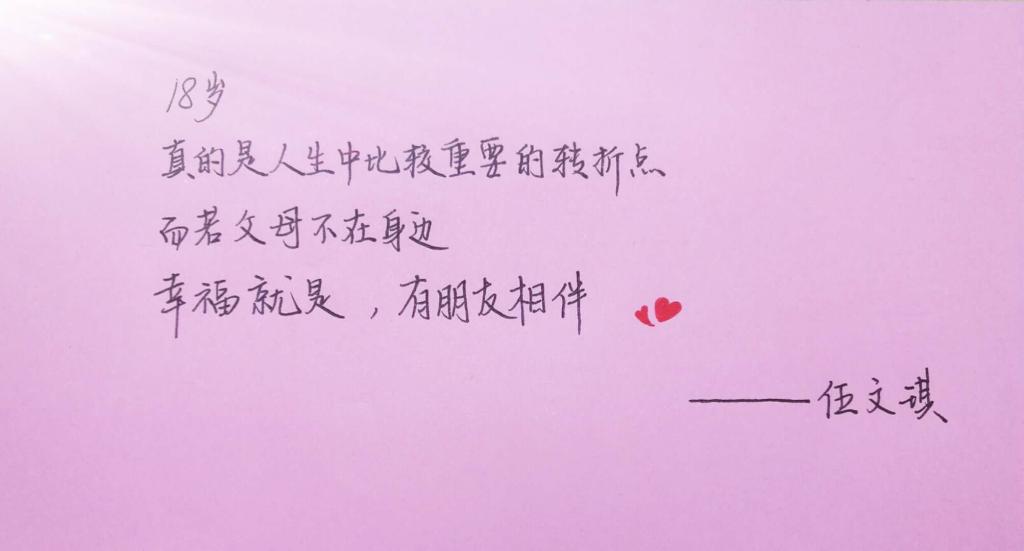 18岁
真的是人生中比较重要的转折点
而若父母不在身边
幸福就是，有朋友相伴
——伍文琪